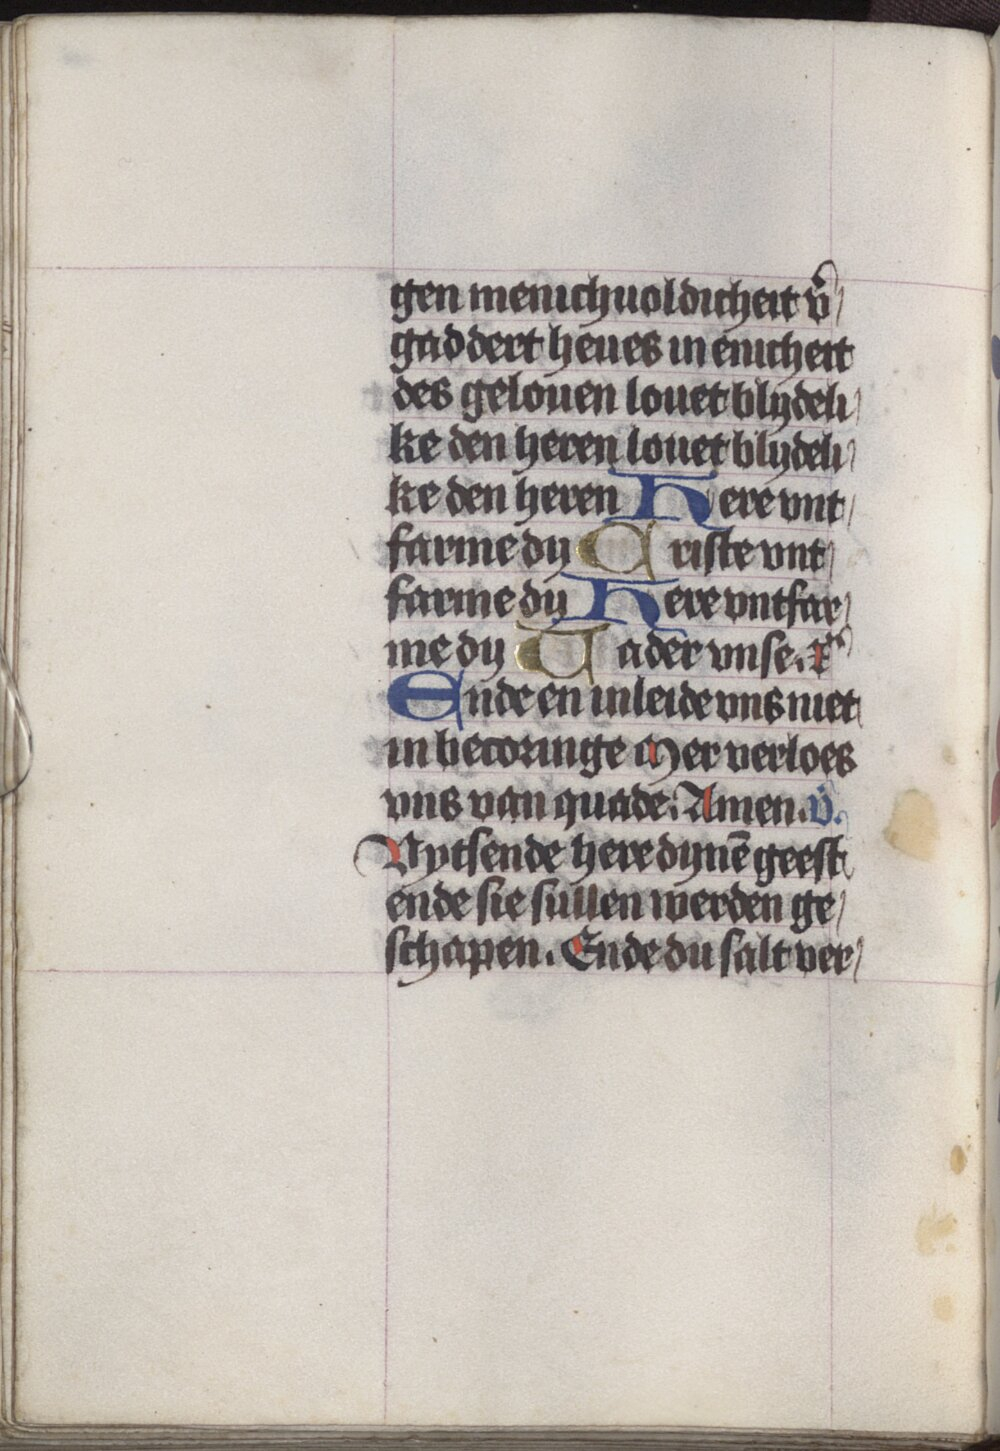 gen menichuoldicheit v̄
gaddert heues in enicheit
des gelouen louet blydeli
ke den heren louet blydeli
ke den heren Here vnt
farme dy Criste vnt
farme dy Here vntfar
me dy Uader vnse.
Ende en inleide vns niet
in becoringe Mer verloes
vns van quade: Amen. v̄.
Uytsende here dynē geest
ende sie sullen werden ge
schapen. Ende du salt ver